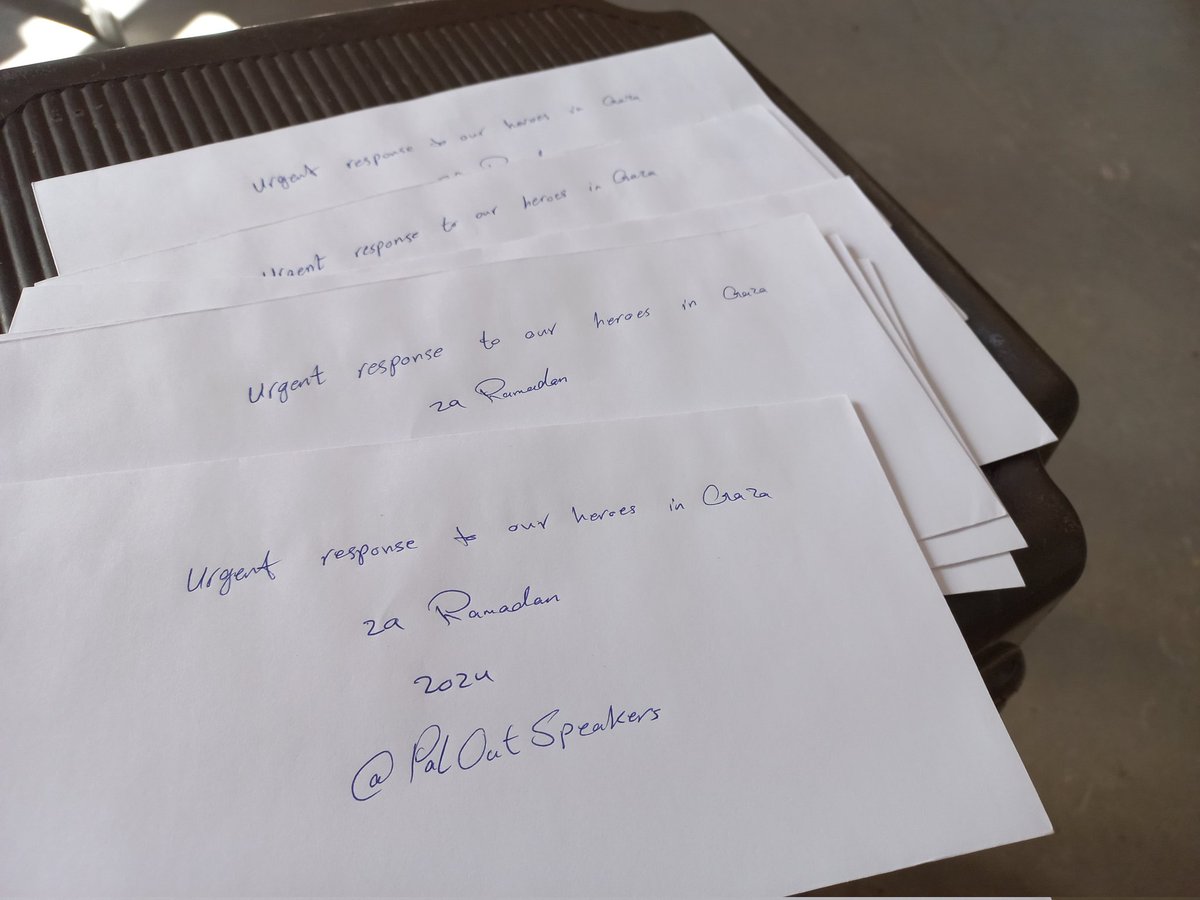 Urgent response to our heroes in Gaza
Urgent response to our heroes in Gaza
Urgent response to our heroes in Gaza
29 Ramadan
Urgent response to our heroes in Gaza
29 Ramadan
2024
@PalOutSpeakers